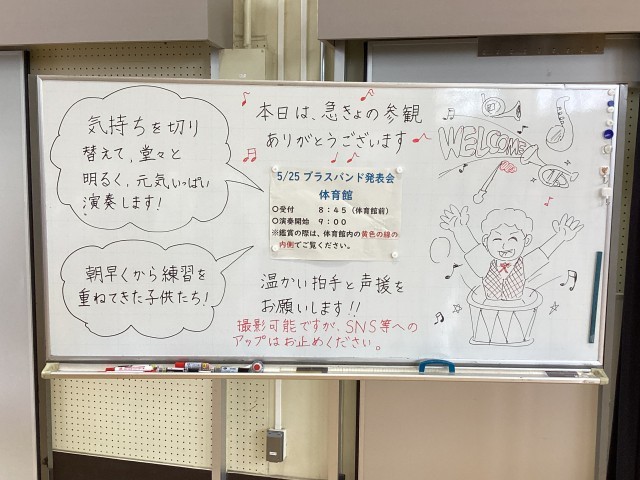 気持ちを切り
替えて、堂々と
明るく、元気いっぱい
演奏します!
朝早くから練習を
重ねてきた子供たち!
本日は、急きょの参観
ありがとうございます
5/25 ブラスバンド発表会
体育館
○受付 8:45(体育館前)
○演奏開始 9:00
※鑑賞の際は、体育館内の黄色の線の
内側でご覧ください。
温かい拍手と声援を
お願いします!!
撮影可能ですが、SNS等への
アップはお止めください。
WELCOME